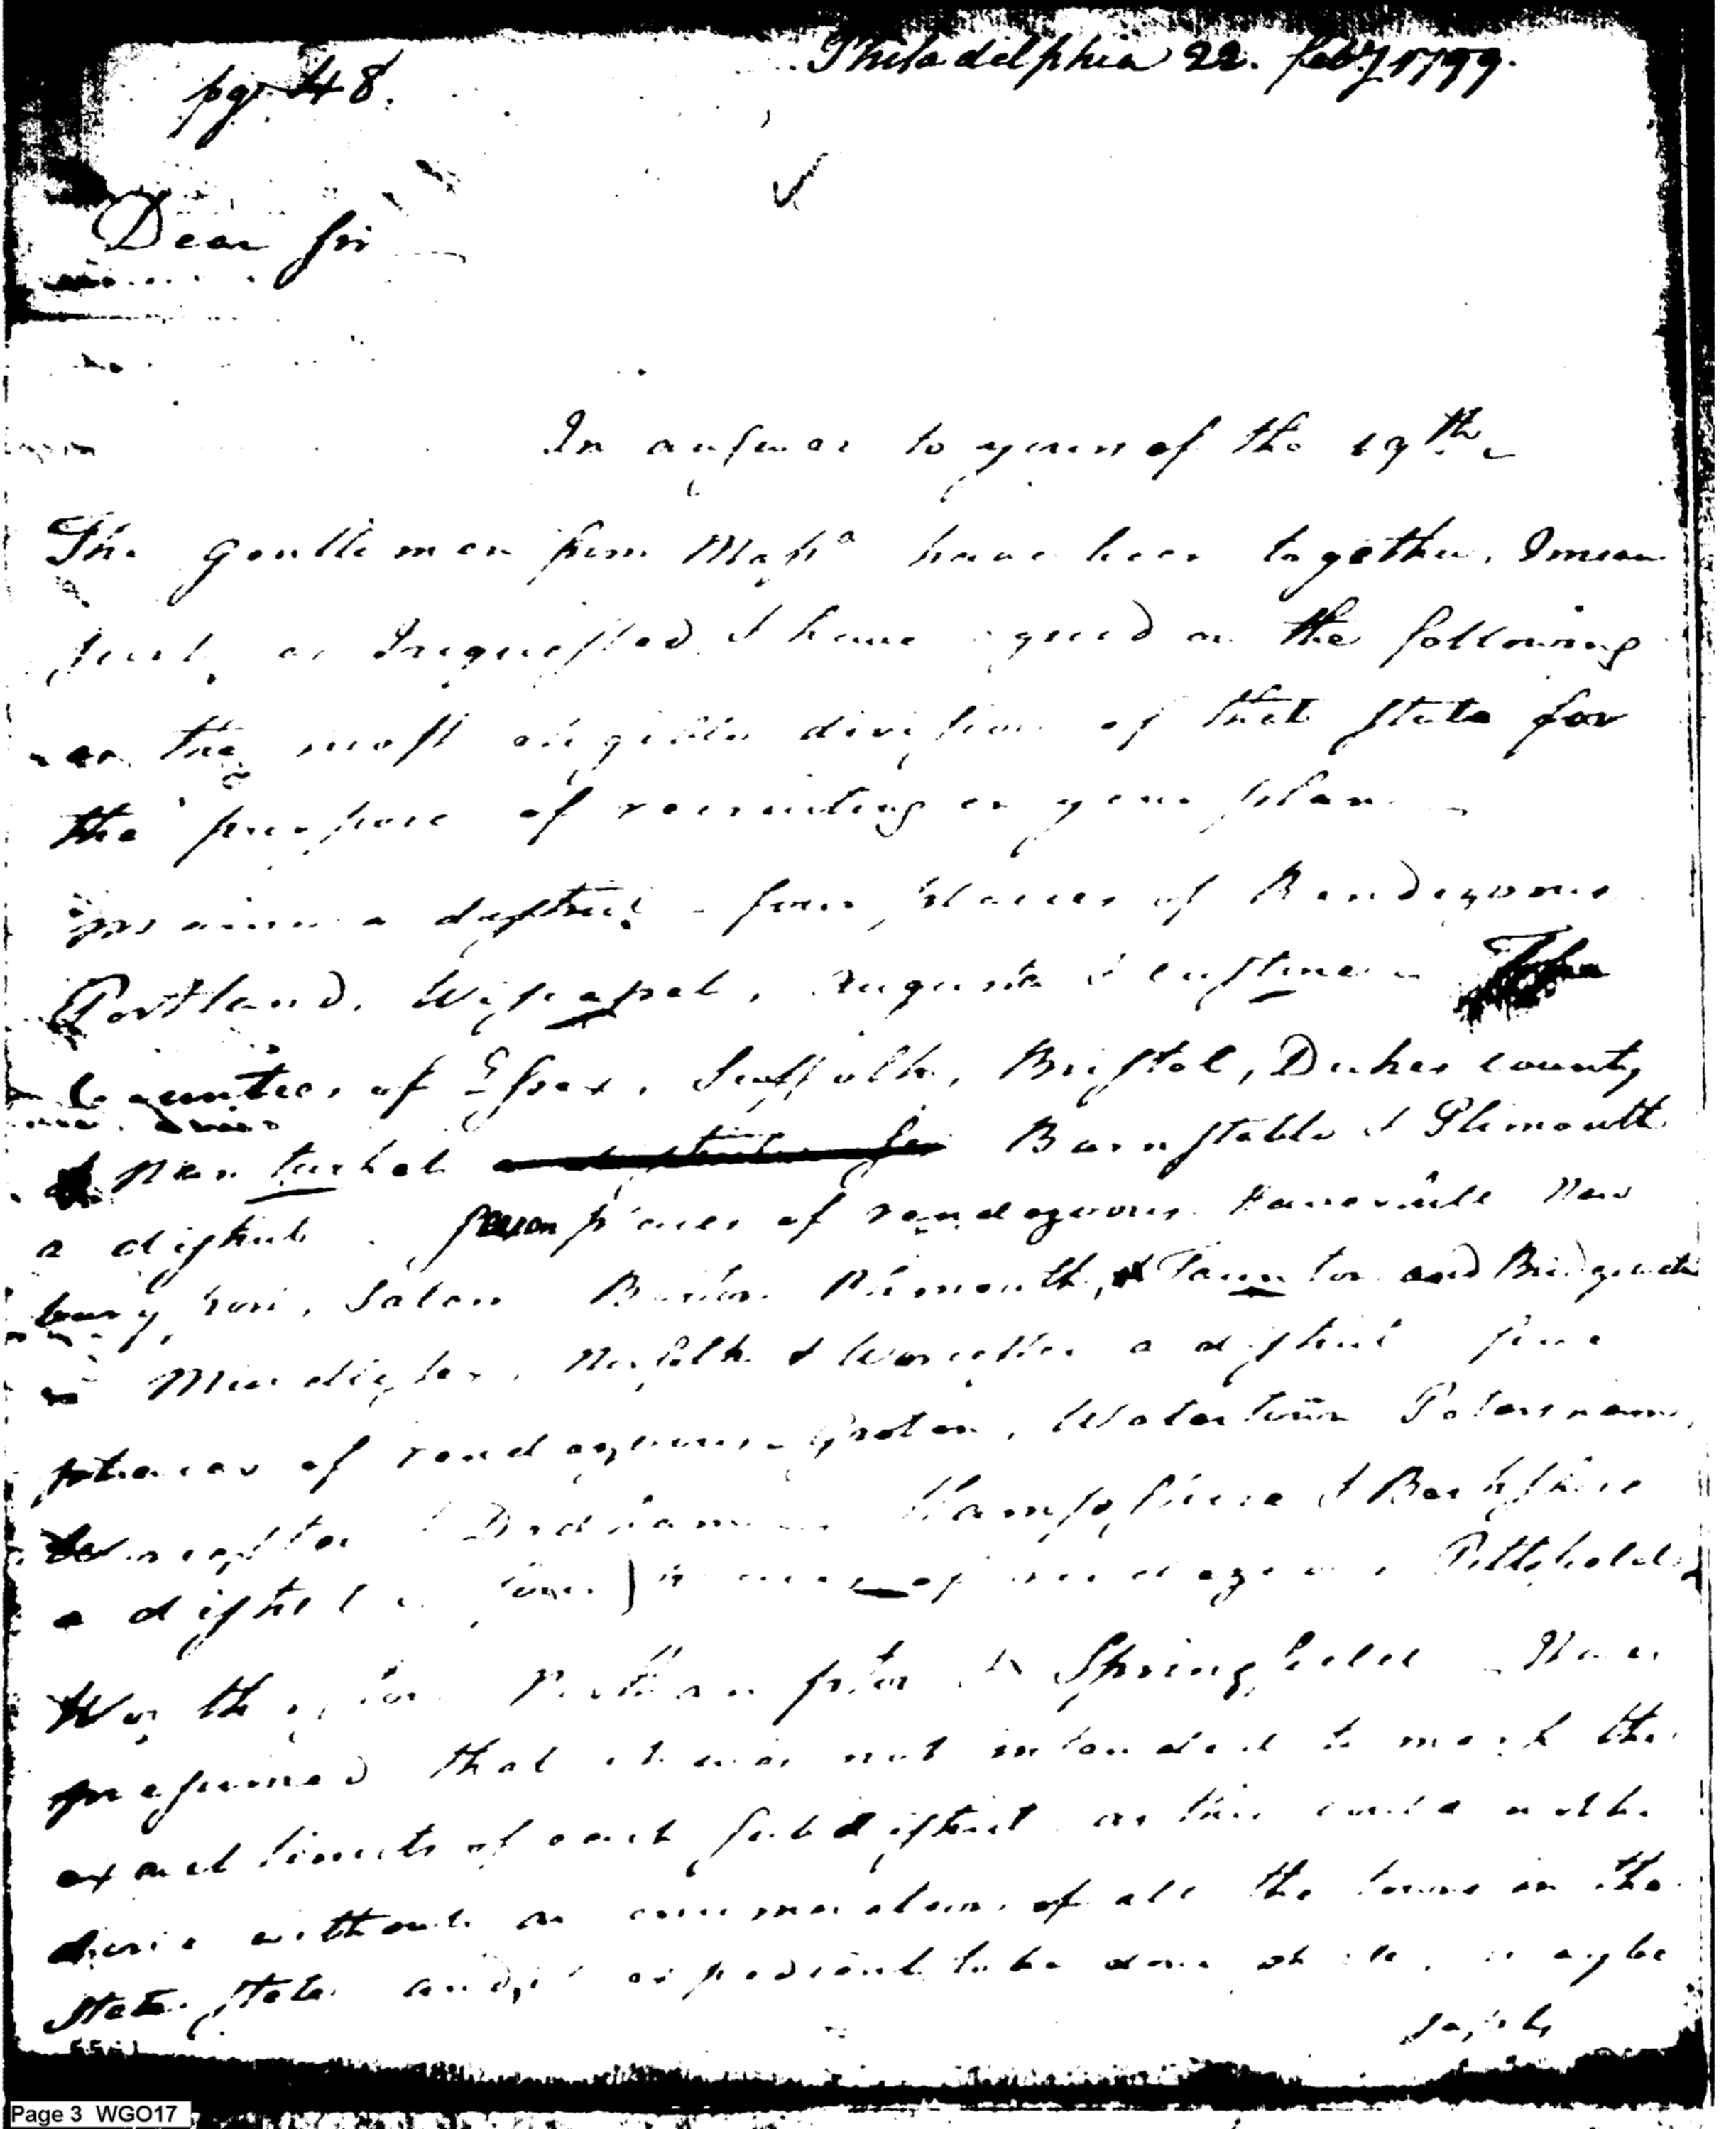 Philadelphia 22. feby 1799.
pg. 48.
Dear Sir
In answer to yours of the 19th
The gentlemen from Massa have been together, I mean
as I requested & have agreed on the following
as the most eligible division of that State for
the purpose of recruiting on your plan
a district - four places of Rendezvous
Portland, Wiscasset, Augusta & Castine
Counties of Essex, Suffolk, Bristol, Dukes county
Nantucket Barnstable & Plimouth
a district. seven places of rendezvous Haverhill New
bury port, Salem Boston Plimouth, & Taunton and Bridgwater
Middlesex, Norfolk & Worcester a district five
places of rendezvous - Groton, Watertown Petersham,
Worcester & Dedham Hampshire & Berkshire
a district four places of rendezvous Pittsfield
Worthington Northampton & Springfield
presumed that it was not intended to mark the
exact limits of each subdistrict as this could not be
done without an enumeration of all the towns in the
State and if expedient to be done at all, may be
safely
Page 3 WGO17